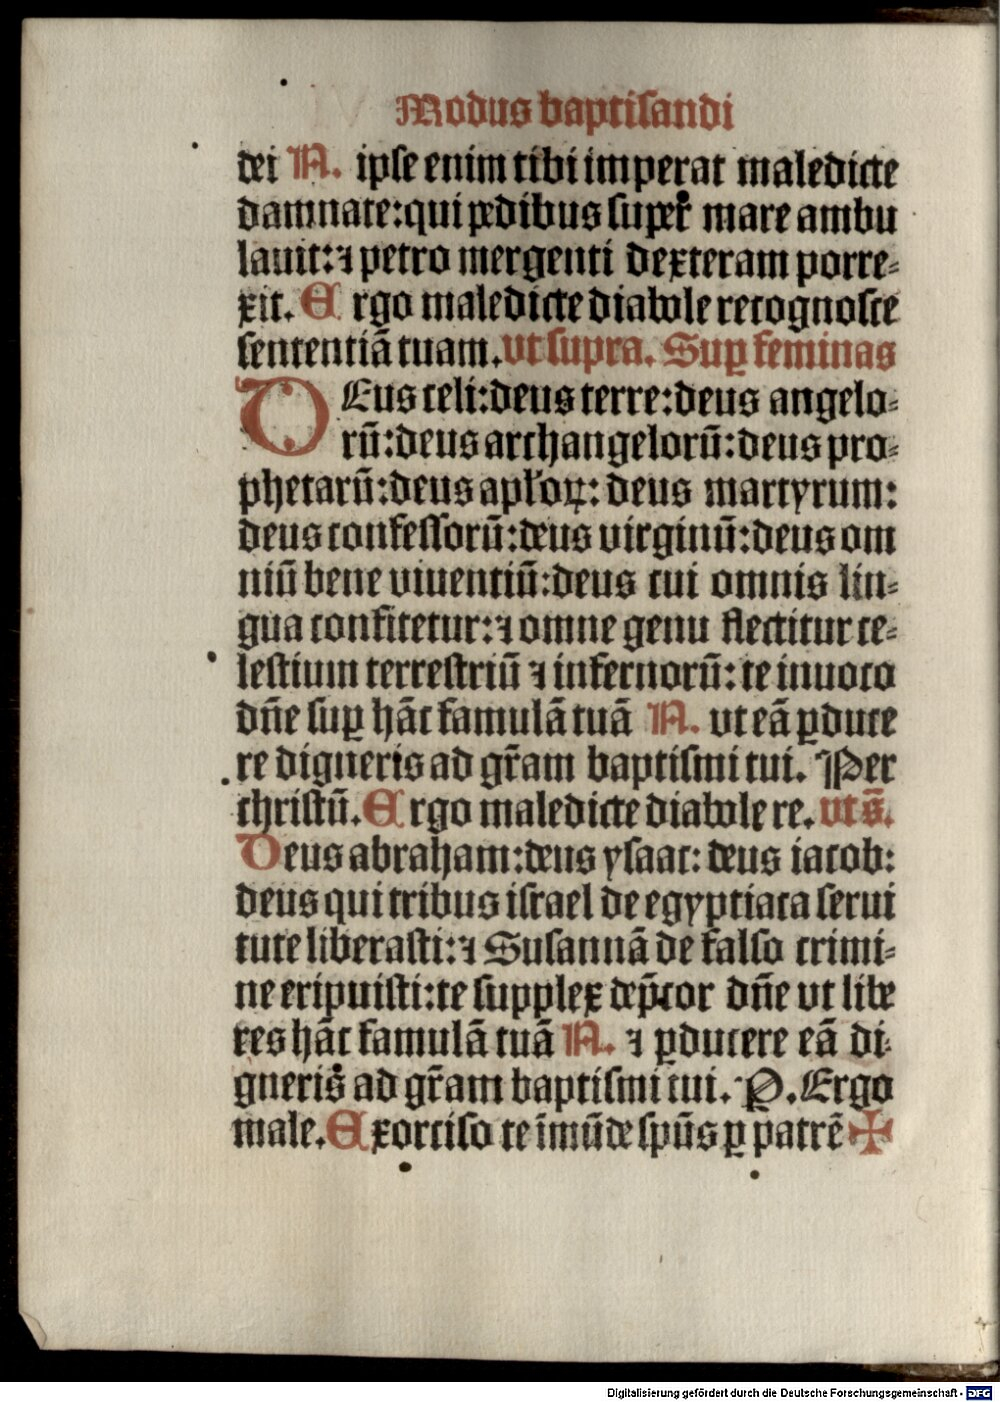 Modus baptisandi
dei N. ipse enim tibi imperat maledicte
damnate:qui pedibus super mare ambu
lauit:⁊ petro mergenti dexteram porre⸗
xit. Ergo maledicte diabole recognosce
sententiā tuam. vt supra. Suꝑ feminas
DEus celi:deus terre:deus angelo⸗
rū:deus archangelorū:deus pro⸗
phetarū:deus apl'oꝝ: deus martyrum:
deus confessorū:deus virginū:deus om
niū bene viuentiū:deus cui omnis lin⸗
gua confitetur:⁊ omne genu flectitur ce⸗
lestium terrestriū ⁊ infernorū: te inuoco
dn̄e suꝑ hāc famulā tuā N. vt eā ꝑduce
re digneris ad gr̄am baptismi tui. Per
christū. Ergo maledicte diabole re. vt s̄.
Deus abraham:deus ysaac: deus iacob:
deus qui tribus israel de egyptiaca serui
tute liberasti:⁊ Susannā de falso crimi⸗
ne eripuisti:te supplex dep̄cor dn̄e vt libe
res hāc famulā tuā N. ⁊ ꝑducere eā di⸗
gneris ad gr̄am baptismi tui. P. Ergo
male. Exorciso te īmūde sp̄us ꝑ patrē ✠
Digitalisierung gefördert durch die Deutsche Forschungsgemeinschaft - DFG